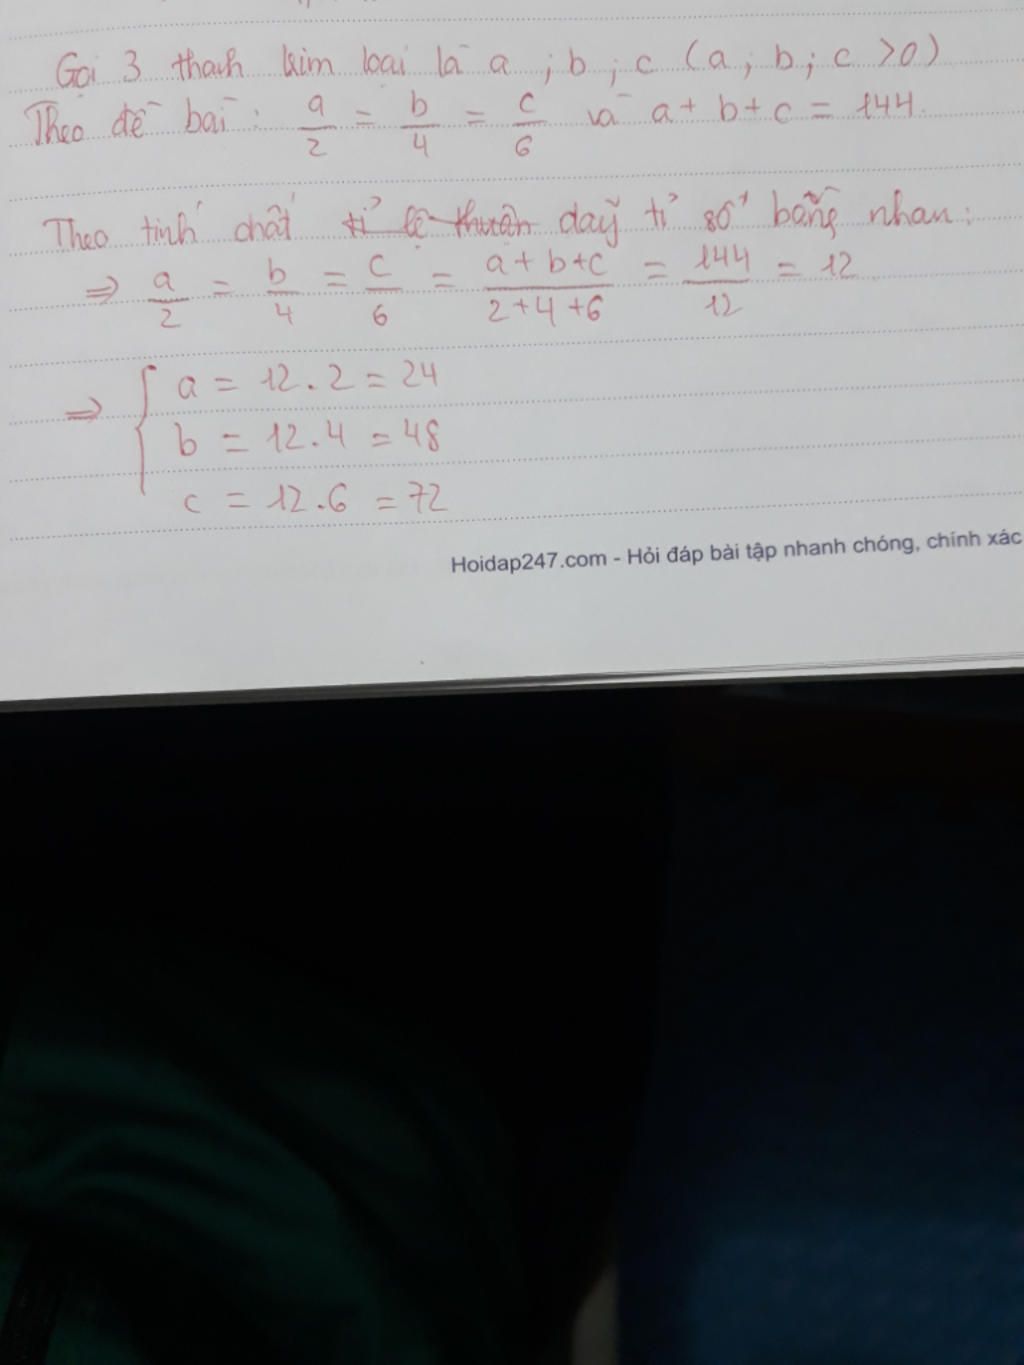 Gọi 3 thanh kim loại là a ; b ; c (a ; b ; c >0)
Theo đề bài : a/2 = b/4 = c/6 và a + b + c = 144.
Theo tính chất tỉ lệ thuận dãy tỉ số bằng nhau :
⇒ a/2 = b/4 = c/6 = a + b + c/2 + 4 + 6 = 144/12 = 12
⇒ { a = 12 . 2 = 24
b = 12 . 4 = 48
c = 12 . 6 = 72
Hoidap247.com - Hỏi đáp bài tập nhanh chóng, chính xác